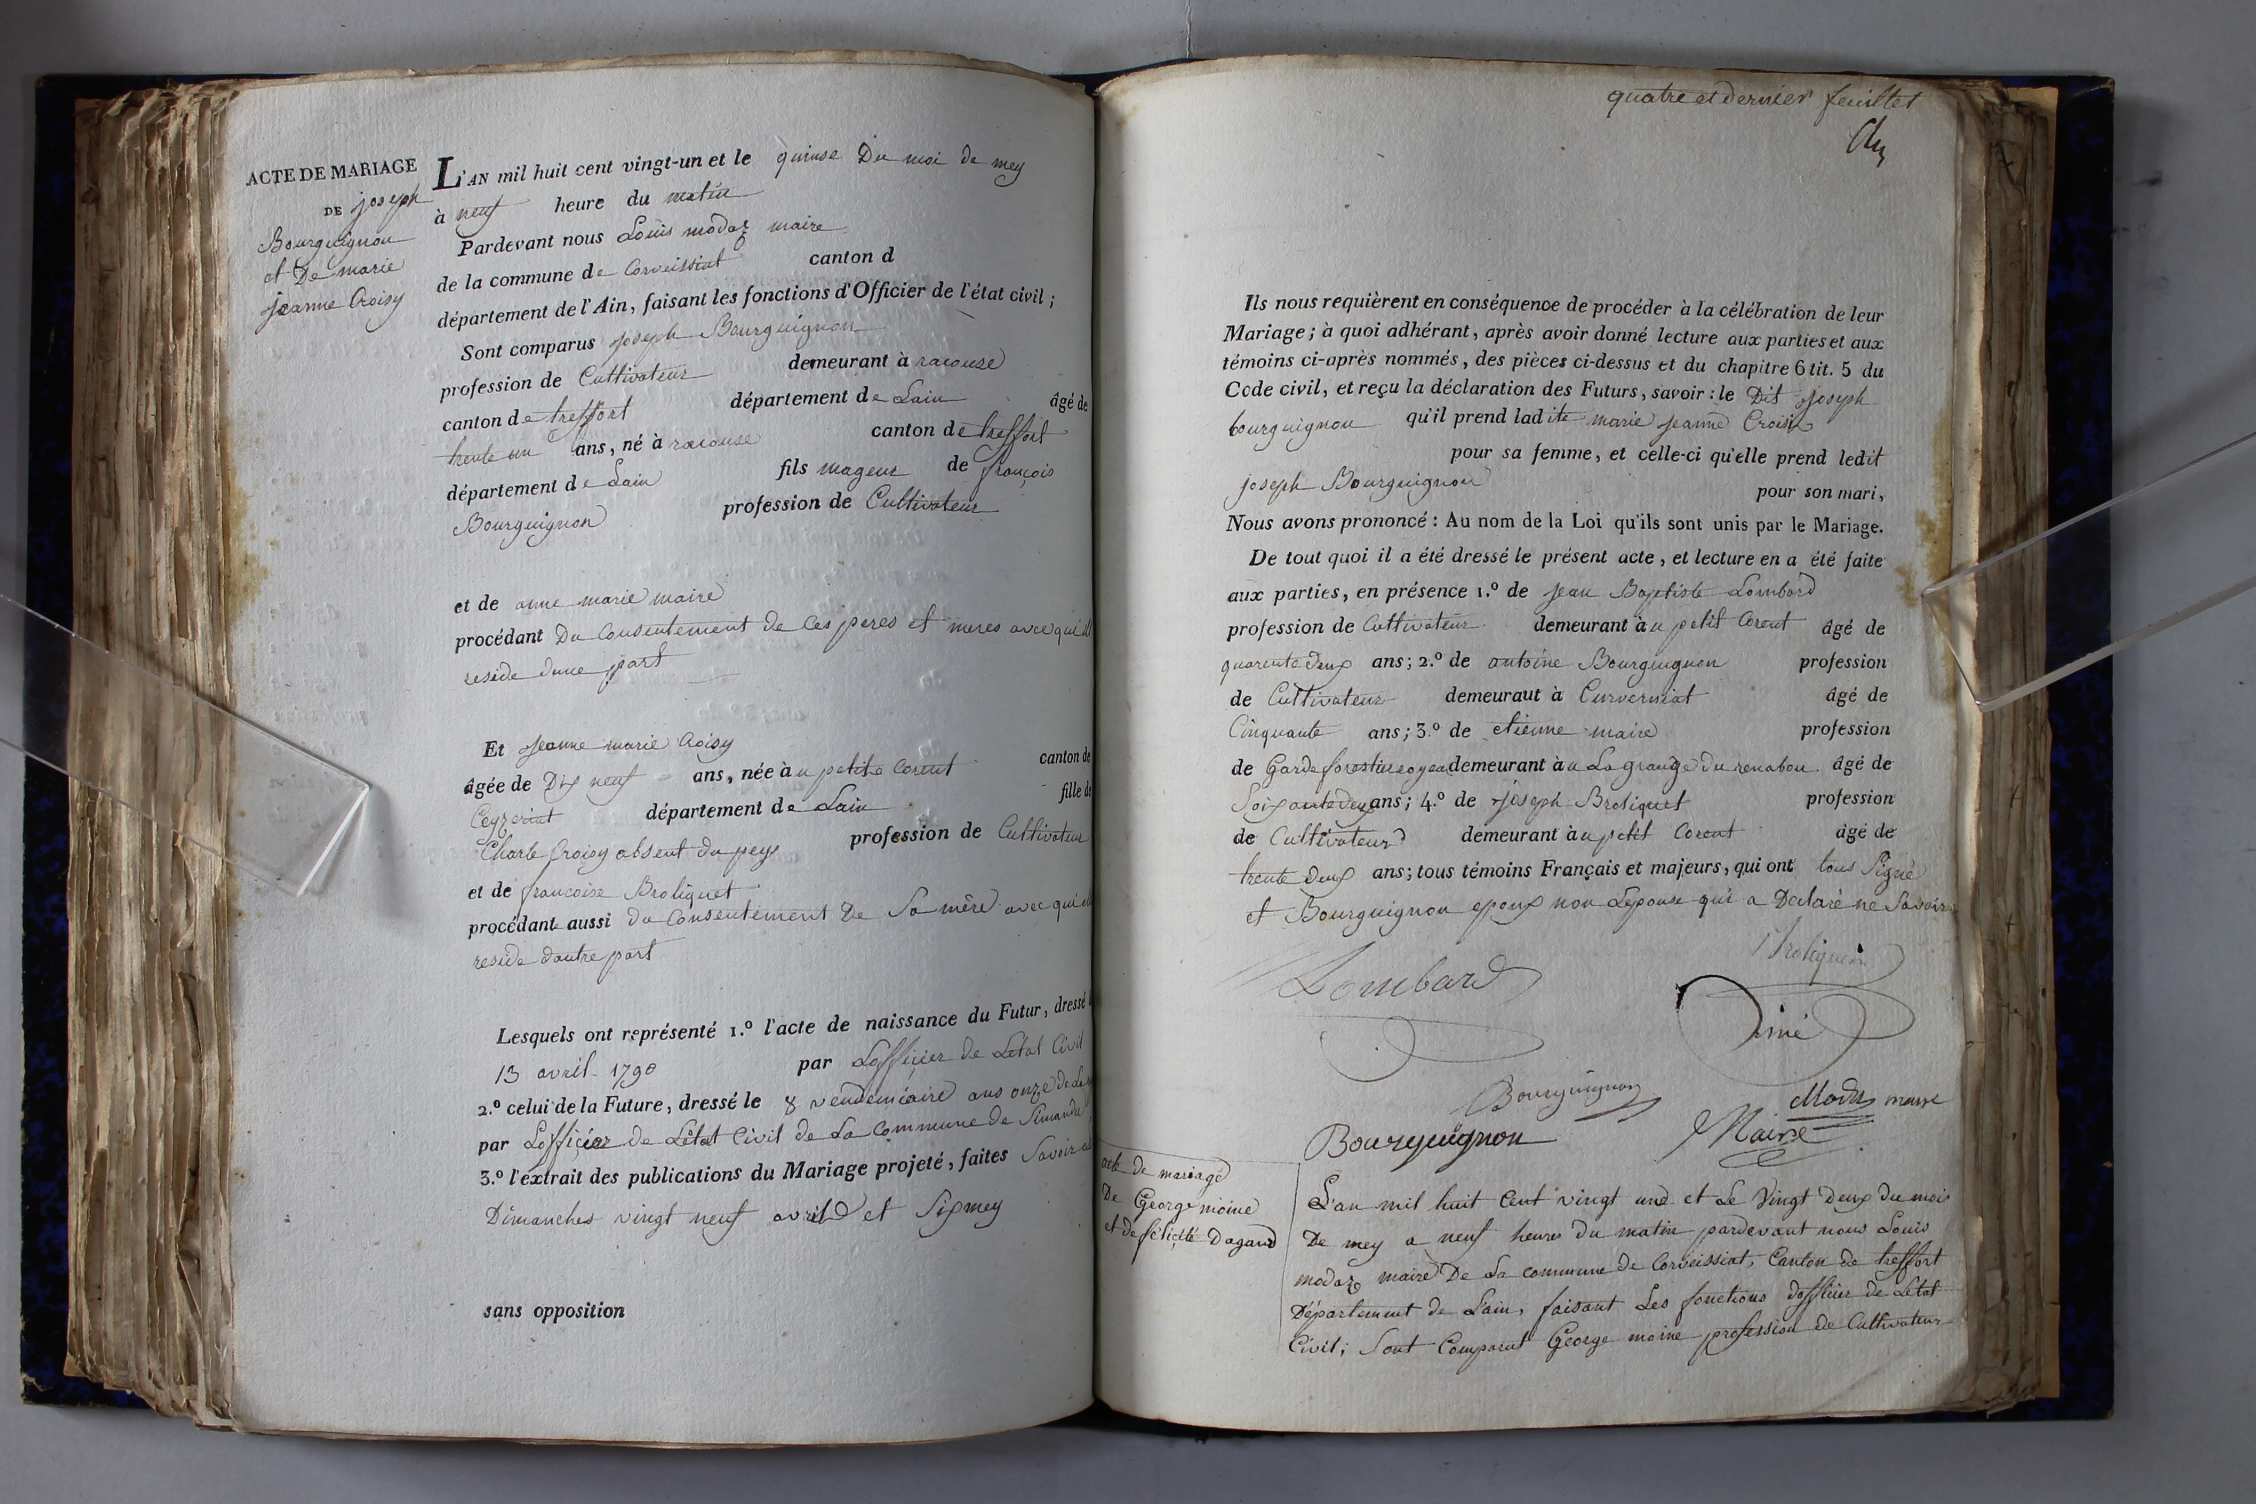 ACTE DE MARIAGE
DE joseph
Bourguignon
et De marie
jeanne Croisy
L'AN mil huit cent vingt-un et le quinse Du moi de mey
à neuf heure du matin
Pardevant nous Louis modaz maire
de la commune de Corveissiat canton d
département de l'Ain, faisant les fonctions d'Officier de l'état civil;
Sont comparus joseph Bourguignon
profession de Cultivateur demeurant à racouse
canton de treffort département de Lain âgé de
trente un ans, né à racouse canton de treffort
département de Lain fils mageur de françois
Bourguignon profession de Cultivateur
et de anne marie maire
procédant Du Consentement de Ces peres et meres avec qui il
reside dune part
Et jeanne marie Croisy
âgée de Dix neuf ans, née à u petit Corent canton de
Ceyzeriat département de Lain fille de
Charle Croisy absent du peys profession de Cultivateur
et de francoise Broliquet
procédant aussi du Consentement De Sa mère avec qui elle
reside dautre part
Lesquels ont représenté 1.º l'acte de naissance du Futur, dressé l
13 avril 1790 par Lofficier de Létat Civil
2.º celui de la Future, dressé le 8 vendemiaire ans onze de La
par Lofficier de Létat Civil de La Commune de Simandre
3.º l'extrait des publications du Mariage projeté, faites Savoir
Dimanches vingt neuf avril et Six mey
sans opposition
quatre et dernier feuillet
Ils nous requièrent en conséquence de procéder à la célébration de leur
Mariage; à quoi adhérant, après avoir donné lecture aux parties et aux
témoins ci-après nommés, des pièces ci-dessus et du chapitre 6 tit. 5 du
Code civil, et reçu la déclaration des Futurs, savoir: le Dit joseph
bourguignon qu'il prend ladite marie jeanne Croisy
pour sa femme, et celle-ci qu'elle prend ledit
joseph Bourguignon pour son mari,
Nous avons prononcé: Au nom de la Loi qu'ils sont unis par le Mariage.
De tout quoi il a été dressé le présent acte, et lecture en a été faite
aux parties, en présence 1.º de jean Baptiste Lombard
profession de Cultivateur demeurant à u petit Corent âgé de
quarente deux ans; 2.º de antoine Bourguignon profession
de Cultivateur demeuraut à Curverniat âgé de
Cinquante ans; 3.º de etienne maire profession
de Garde forestier demeurant à u La grange du renabou âgé de
Soixante deux ans; 4.º de joseph Broliquet profession
de Cultivateur demeurant à u petit Corent âgé de
trente deux ans; tous témoins Français et majeurs, qui ont tous Signé
et Bourguignon epoux non Lepouse qui a Declaré ne Savoir
Lombard
Bourguignon
Modas maire
Bourguignon
Maire
acte de mariage
De George moine
et de félicité Dagand
L'an mil huit Cent vingt und et Le Vingt Deux du moi
De mey a neuf heures du matin pardevant nous Louis
modaz maire De La commune de Corveissiat, Canton de treffort
Département de L'ain, faisant Les fonctions dofficier de Létat
Civil; Sont Comparut George moine profession de Cultivateur